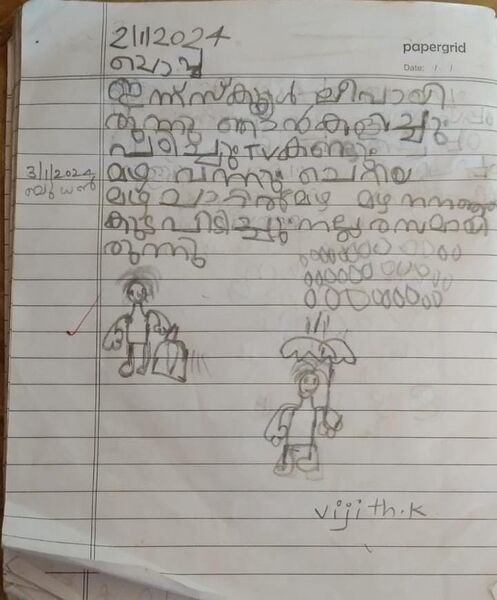 2/1/2024
papergrid
Date: / /
ചൊവ്വ
ഇന്ന് സ്കൂൾ ലീവായി
രുന്നു ഞാൻ കളിച്ചും
പഠിച്ചും TV കണ്ടും
3/1/2024
ബുധൻ
മഴ വന്നു ചെറിയ
മഴ മഴ മഴ നനഞ്ഞും
കുട പിടിച്ചും നല്ല രസമായി
രുന്നു
vijith.k